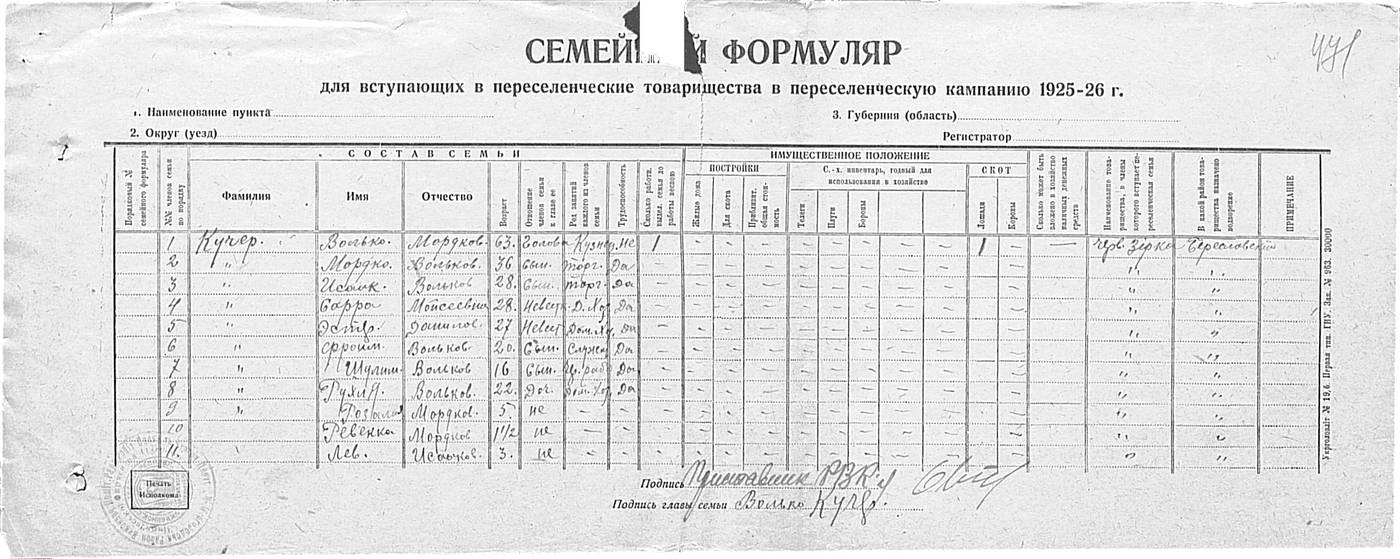 СЕМЕЙ Й ФОРМУЛЯР
для вступающих в переселенческие товарищества в переселенческую кампанию 1925-26 г.
1. Наименование пункта
3. Губерния (область)
2. Округ (уезд)
Регистратор
СОСТАВ СЕМЬИ
ИМУЩЕСТВЕННОЕ ПОЛОЖЕНИЕ
ПОСТРОЙКИ
С.-х. инвентарь, годный для использования в хозяйстве
СКОТ
Порядковый № семейного формуляра
№№ членов семьи по порядку
Фамилия
Имя
Отчество
Возраст
Отношение членов семьи к главе ее
Род занятий каждого из членов семьи
Трудоспособность
Сколько работн. выдел. семья до работы весною
Жилые дома
Для скота
Приблизит. общая стоимость
Телеги
Плуги
Бороны
Лошади
Коровы
Сколько может быть вложено в хозяйство наличных денежных средств
Наименование товарищества, в члены которого вступает переселенческая семья
В какой район товарищества назначено водворение
ПРИМЕЧАНИЕ
1 Кучер. Волько. Мордков. 63. Голова Кузнец Не 1 — — — — — — 1 — — Черв. Зірка
2 " Мордко. Вольков. 36 Сын. Торг. Да — " "
3 " Исаак. Вольков 28. Сын. Торг. Да — " "
4 " Сарра Мойсеевна 28. Невестк. Д. Хоз. Да — " "
5 " Эстер. Данилов. 27 Невест. Дом. Хоз. Да — " "
6 " Фроим. Вольков. 20. Сын. Служ. Да — " "
7 " Шулим. Вольков 16 Сын. Да — " "
8 " Рухля. Вольков. 22. Доч. Дом. Хоз. Да — " "
9 " Розалия Мордков. 5. не — — — " "
10 Ревекка Мордков 1 1/2 не — — — " "
11. " Лев. Исааков 3. не — — — " "
Печать Исполкома
Подпись
Подпись главы семьи Волько Кучер.
Укрголовліт № 19,б. Первая тип. ГИУ. Зак. № 983. 30000